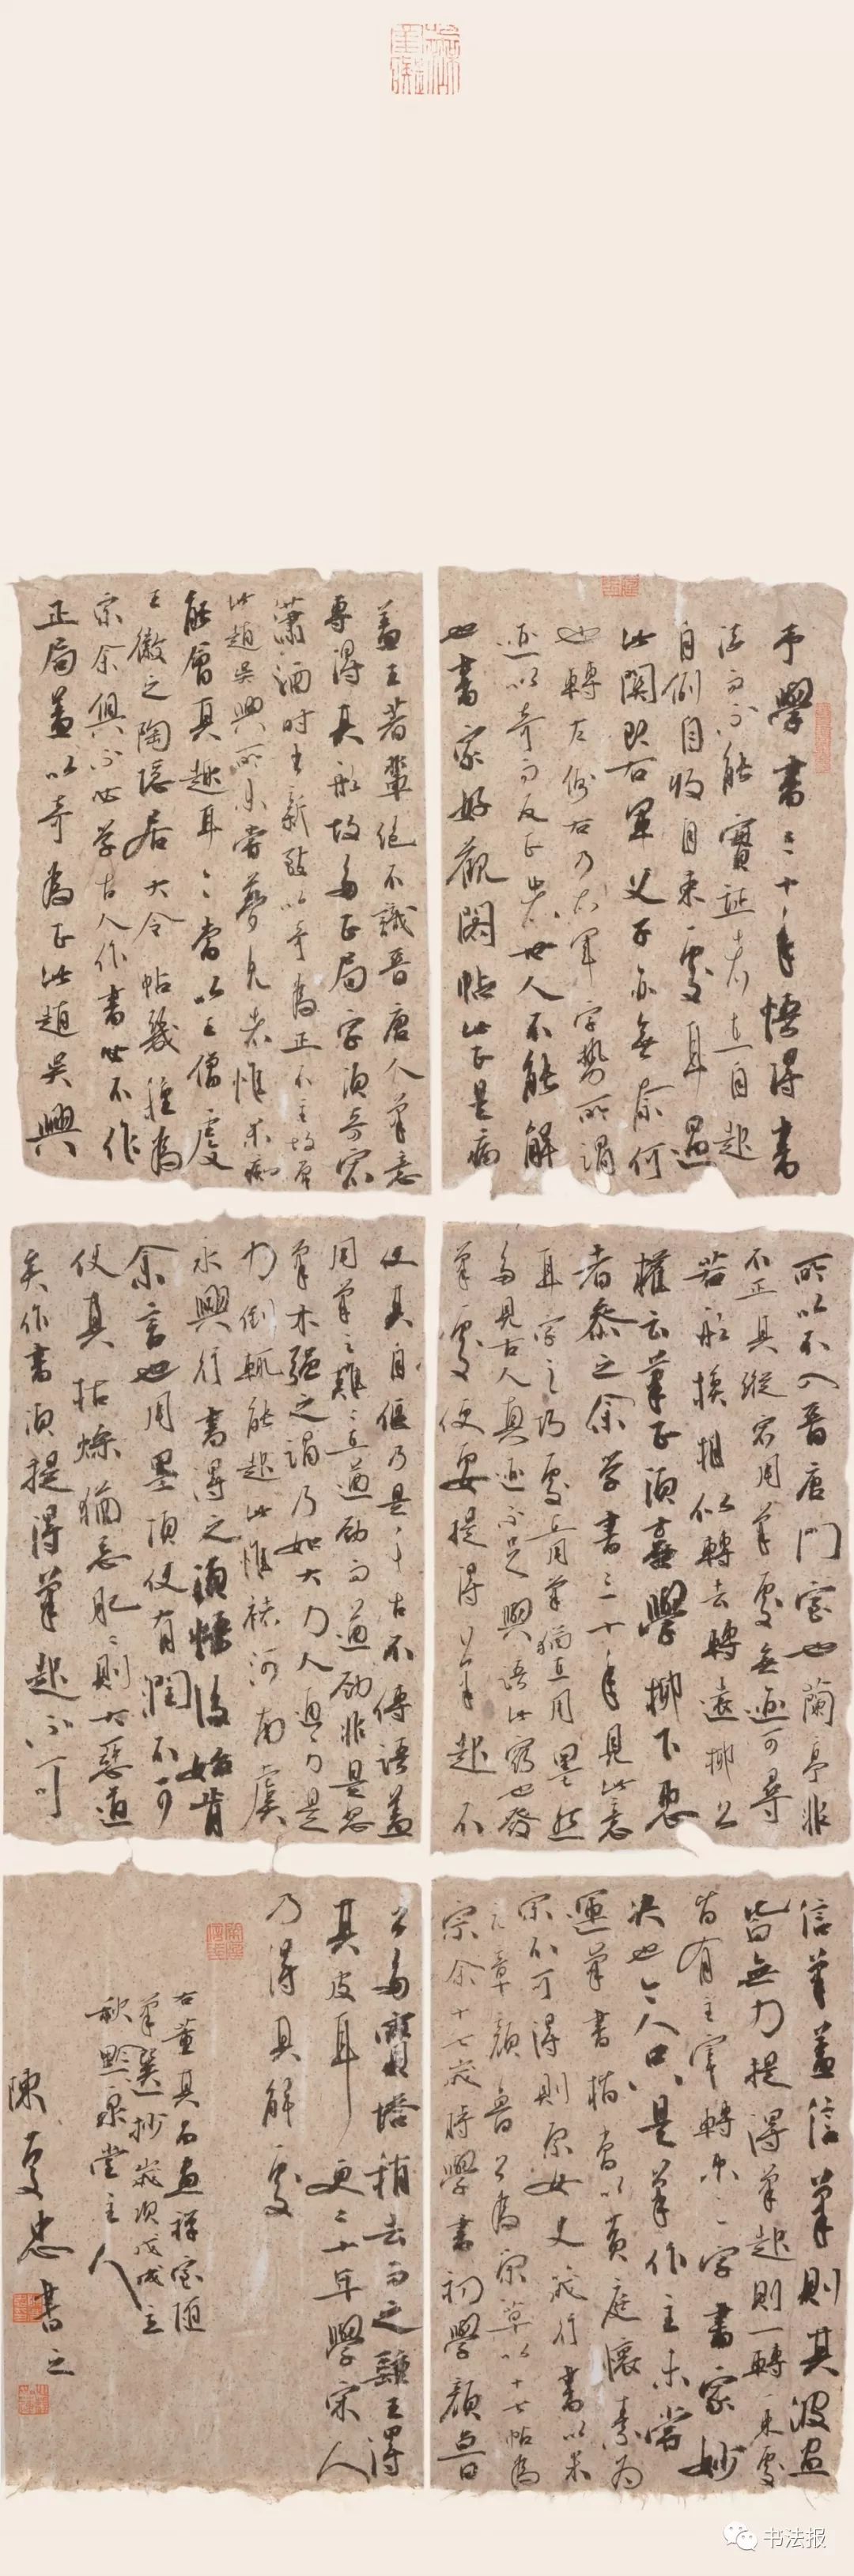 予學書三十年悟得書
法而不能實証者在自起
自倒自收自束處耳過
此關即右軍父子亦無奈何
也轉左側右乃右軍字勢所謂
迹似奇而反正者世人不能解
也書家好觀閣帖此正是病
蓋王著輩絕不識晉唐人筆意
專得其形故多正局字須奇宕
瀟洒時出新致以奇為正不主故常
此趙吳興所未嘗夢見者惟米痴
能會其趣耳耳當以王僧虔
王徽之陶隱居大令帖幾種為
宗余俱不必學古人作書必不作
正局蓋以奇為正此趙吳興
所以不入晉唐門室也蘭亭非
不正其縱宕用筆處無迹可尋
若形模相似轉去轉遠柳公
權云筆正須善學柳下惠
者參之余学書三十年見此意
耳字之巧處在用筆猶在用墨然
多見古人真迹不足與語此竅也發
筆處便要提得筆起不
使其自偃乃是千古不傳語蓋
用筆之難難在遒勁而遒勁非是怒
筆木強之謂乃如大力人通身是
力倒輒能起此惟褚河南虞
永興行書得之須悟後始肯
余言也用墨須使有潤不可
使其枯燥猶忌肥肥則大惡道
矣作書須提得筆起不可
信筆蓋信筆則其波畫
皆無力提得筆起則一轉一束處
皆有主宰轉束二字書家妙
訣也今人只是筆作主未嘗
運筆書楷當以黃庭懷素為
宗不可得則宗女史箴行書以米
元章顏魯公為宗草以十七帖為
宗余十七歲時學書初學顏魯
公多寶塔稍去而之鍾王得
其皮耳更二十年學宋人
乃得其解處
右董其昌畫禪室隨
筆選抄歲次戊戌立
秋黟泉堂主人
陳夏忠書之
书法报